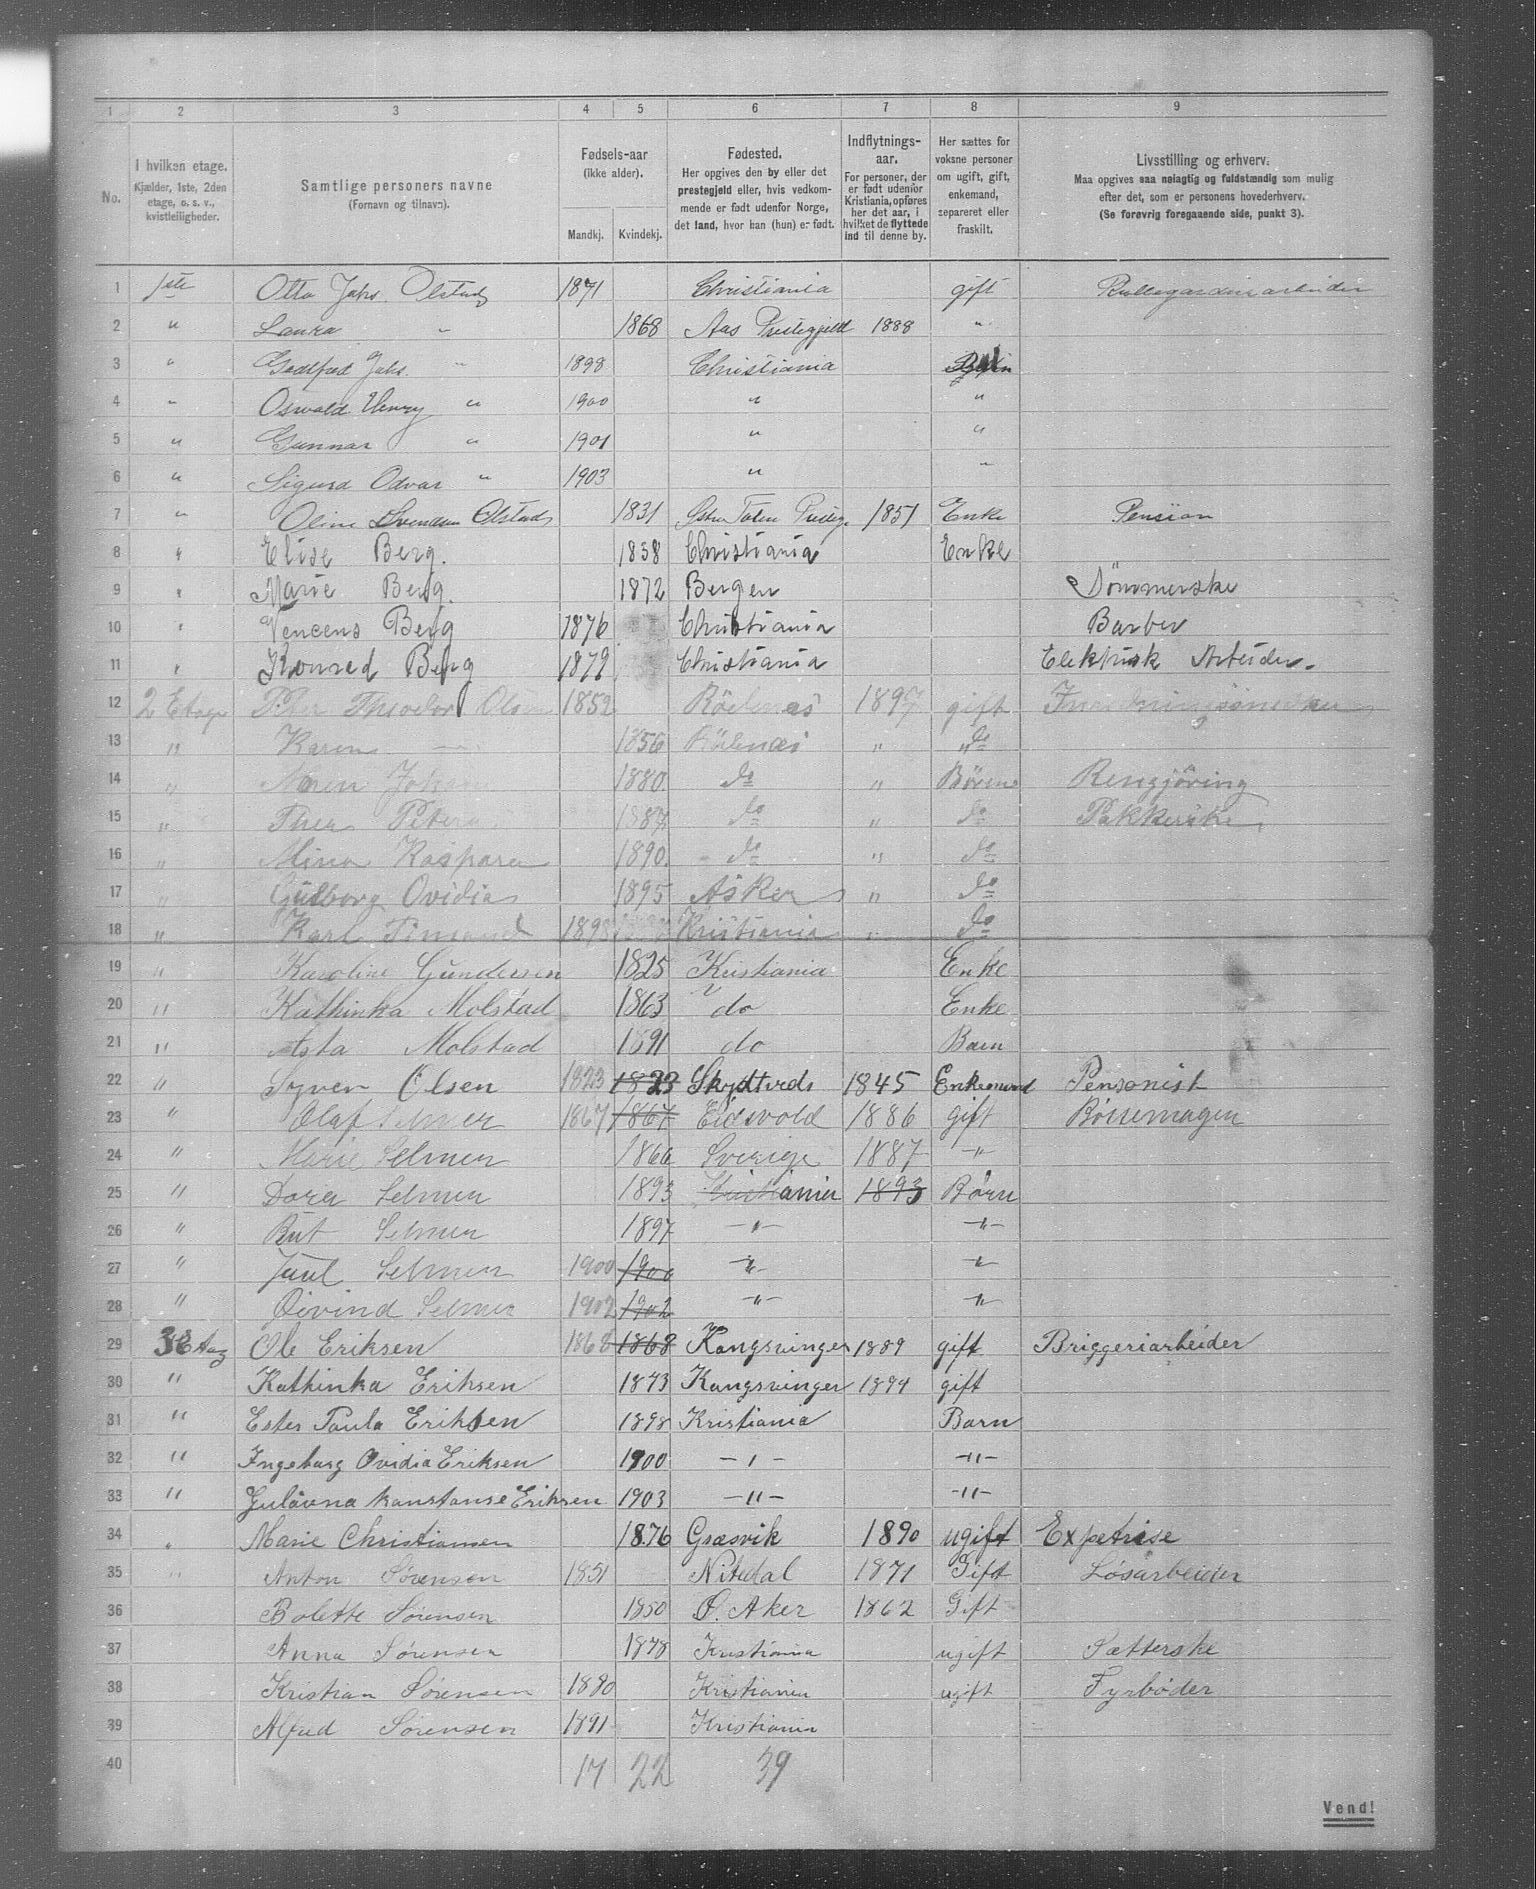 1 2 3 4 5 6 7 8 9
No.
I hvilken etage. Kjælder, 1ste, 2den etage, o. s. v., kvistleiligheder.
Samtlige personers navne (Fornavn og tilnavn).
Fødsels-aar (ikke alder). Mandkj. Kvindekj.
Fødested. Her opgives den by eller det prestegjeld eller, hvis vedkommende er født udenfor Norge, det land, hvor han (hun) er født.
Indflytnings-aar. For personer, der er født udenfor Kristiania, opføres her det aar, i hvilket de flyttede ind til denne by.
Her sættes for voksne personer om ugift, gift, enkemand, separeret eller fraskilt.
Livsstilling og erhverv. Maa opgives saa nøiagtig og fuldstændig som mulig efter det, som er personens hovederhverv. (Se forøvrig foregaaende side, punkt 3).
1 1ste Otto Johs. Olstad 1871 Christiania gift
2 " Laura " 1868 Aas Prestegjeld 1888 "
3 " Godtfred Johs. " 1898 Christiania
4 " Oswald Henry " 1900 " "
5 " Gunnar " 1901 " "
6 " Sigurd Odvar " 1903 " "
7 " Oline Svendsen Olstad 1831 Østre Toten Presteg. 1851 Enke Pension
8 " Elise Berg. 1838 Christiania Enke
9 " Marie Berg. 1872 Bergen Sømmerske
10 " Vencens Berg 1876 Christiania Barber
11 " Konrad Berg 1879 Christiania Elektrisk Arbeider.
12 2 Etage Peter Theodor Olsen 1852 Rödenæs 1897 gift Indredningssnedker
13 " Karen 1856 Rödenæs " do
14 " 1880 do " Börn Rengjöring
15 " Thea Petera 1887 do " do Pakkerske
16 " Mina Kaspara 1890 do " do
17 " Gudborg Ovidia 1895 Asker " do
18 " Karl 1898 Kristiania " do
19 " Karoline Gundersen 1825 Kristiania Enke
20 " Kathinka Molstad 1863 do Enke
21 " Asta Molstad 1891 do Barn
22 " Syver Olsen 1823 1823 1845 Enkemand Pensonist
23 " Olaf Selmer 1867 1867 Eidsvold 1886 gift Börsemager
24 " Marie Selmer 1866 Sverige 1887 "
25 " Dora Selmer 1893 Christiania 1893 Børn
26 " Rut Selmer 1897 " "
27 " Juul Selmer 1900 1900 " "
28 " Øivind Selmer 1902 1902 " "
29 3 Etag Ole Eriksen 1868 1868 Kongsvinger 1889 gift Briggeriarbeider
30 " Kathinka Eriksen 1873 Kongsvinger 1894 gift
31 " Ester Paula Eriksen 1898 Kristiania Barn
32 " Ingeborg Ovidia Eriksen 1900 " "
33 " Gulovna Konstanse Eriksen 1903 " "
34 " Marie Christiansen 1876 Græsvik 1890 ugift Expetrise
35 " Anton Sørensen 1851 Nitedal 1871 Gift Løsarbeider
36 Bolette Sørensen 1850 Ø. Aker 1862 Gift
37 Anna Sørensen 1878 Kristiania ugift Sætterske
38 Kristian Sørensen 1880 Kristiania ugift Fyrbøder
39 Alfred Sørensen 1891 Kristiania
40 17 22 39
Vend!